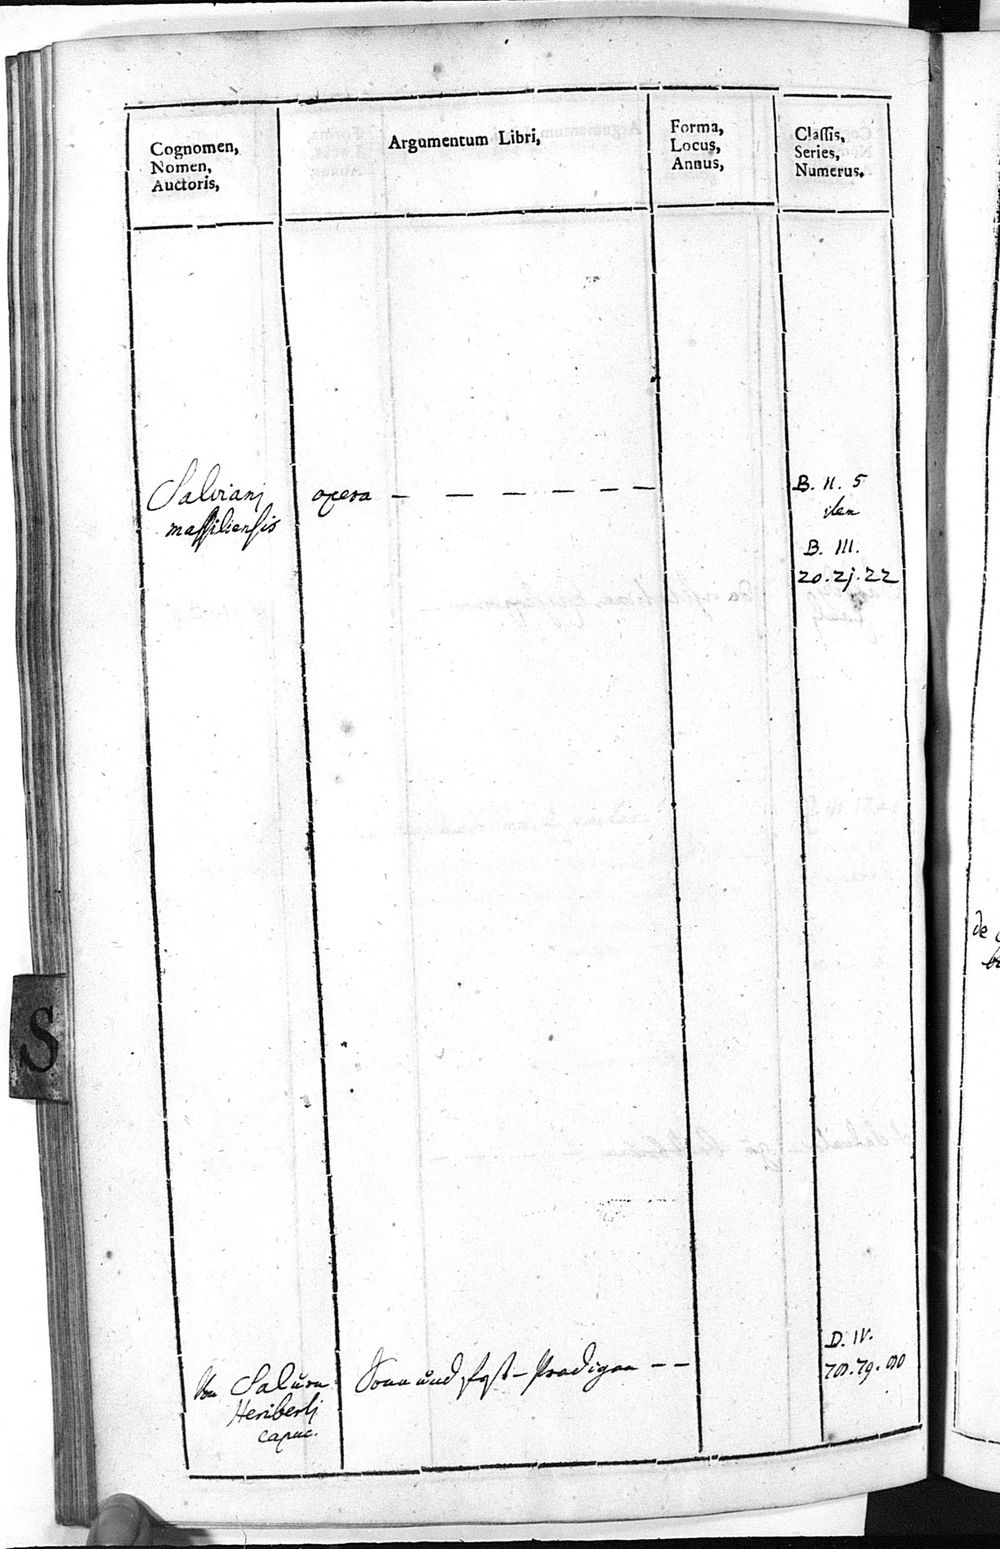 Cognomen,
Nomen,
Auctoris,
Argumentum Libri,
Forma,
Locus,
Annus,
Classis,
Series,
Numerus.
Salviani opera — — — — — B. II. 5
massiliensis
item
B. III.
20. 21. 22
S
de
D. IV.
Von Salurn Sonn und fest-Predigen — — 78. 79. 80
Heriberti
capuc.